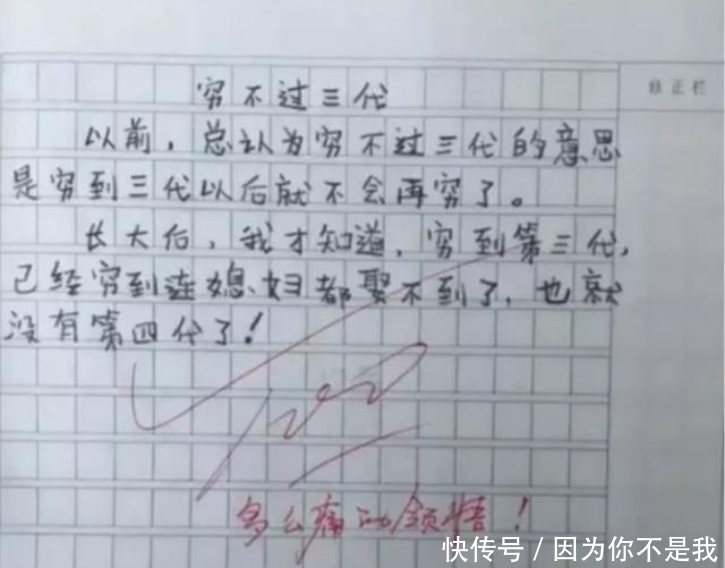 穷不过三代
修正栏
以前，总认为穷不过三代的意思
是穷到三代以后就不会再穷了。
长大后，我才知道，穷到第三代，
已经穷到连媳妇都娶不到了，也就
没有第四代了！
100
多么痛的领悟！
快传号／因为你不是我